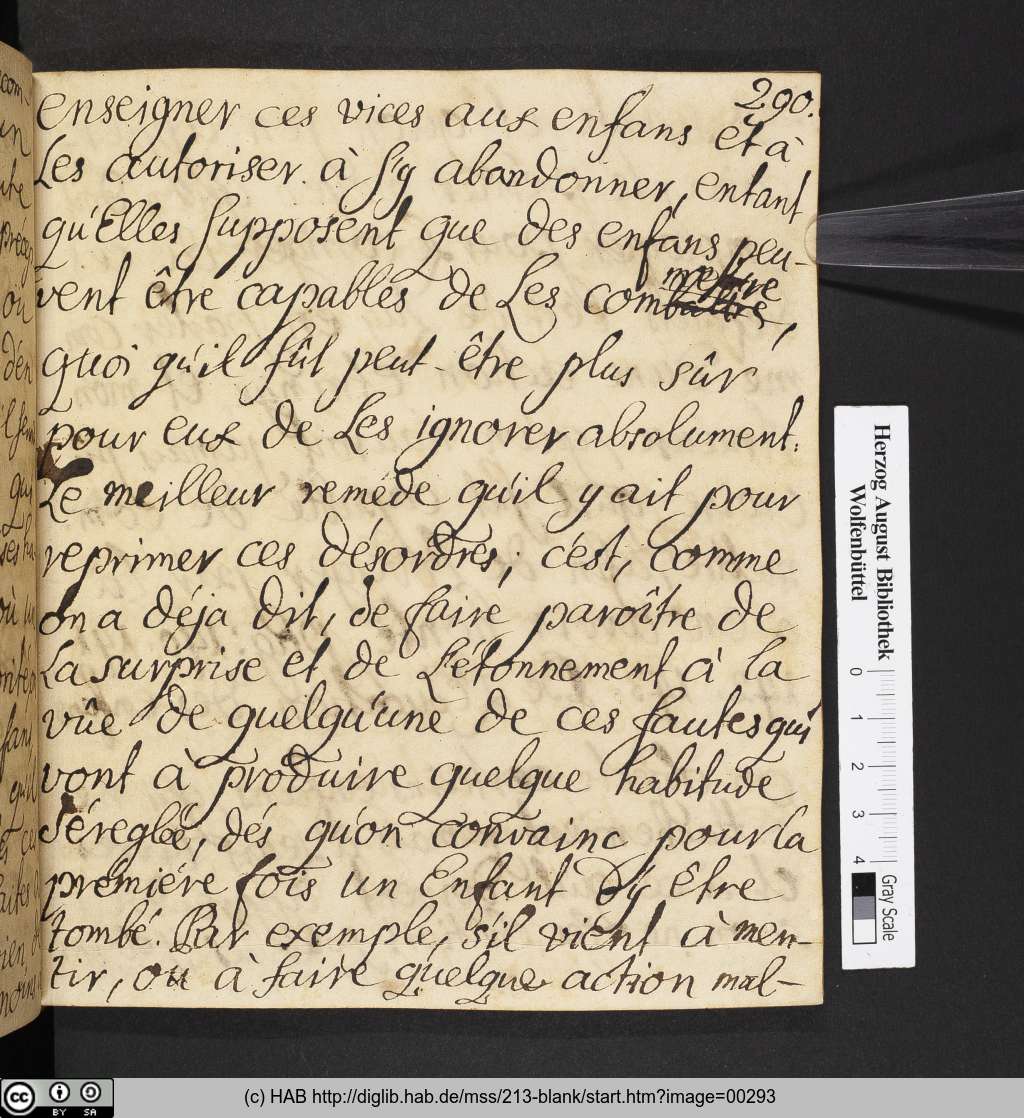 290.
enseigner ces vices aux enfans et à
Les autoriser à s'y abandonner, entant
qu'Elles supposent que des enfans peu-
vent être capables de Les commettre,
quoi qu'il fût peut-être plus sûr
pour eux de Les ignorer absolument.
Le meilleur reméde qu'il y ait pour
reprimer ces désordres; c'est, comme
on a déja dit, de faire paroître de
La surprise et de L'étonnement à la
vûe de quelqu'une de ces fautes qui
vont à produire quelque habitude
déreglée, dés qu'on convainc pour la
premiére fois un Enfant d'ÿ être
tombé. Par exemple, s'il vient à men-
tir, ou à faire quelque action mal-
Herzog August Bibliothek
Wolfenbüttel
0 1 2 3 4
Gray Scale
cc BY SA
(c) HAB http://diglib.hab.de/mss/213-blank/start.htm?image=00293